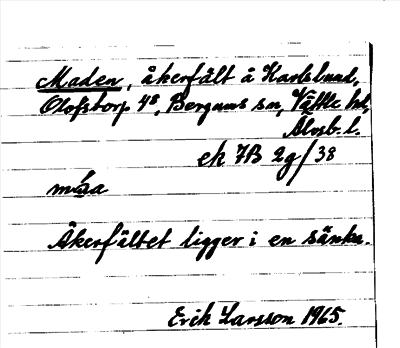 Maden, åkerfält å Karlslund,
Olofstorp 4⁸, Bergums sn, Vättle hd,
Älvsb. l.
ek 7B 2g/38
Åkerfältet ligger i en sänka.
Erik Larsson 1965.